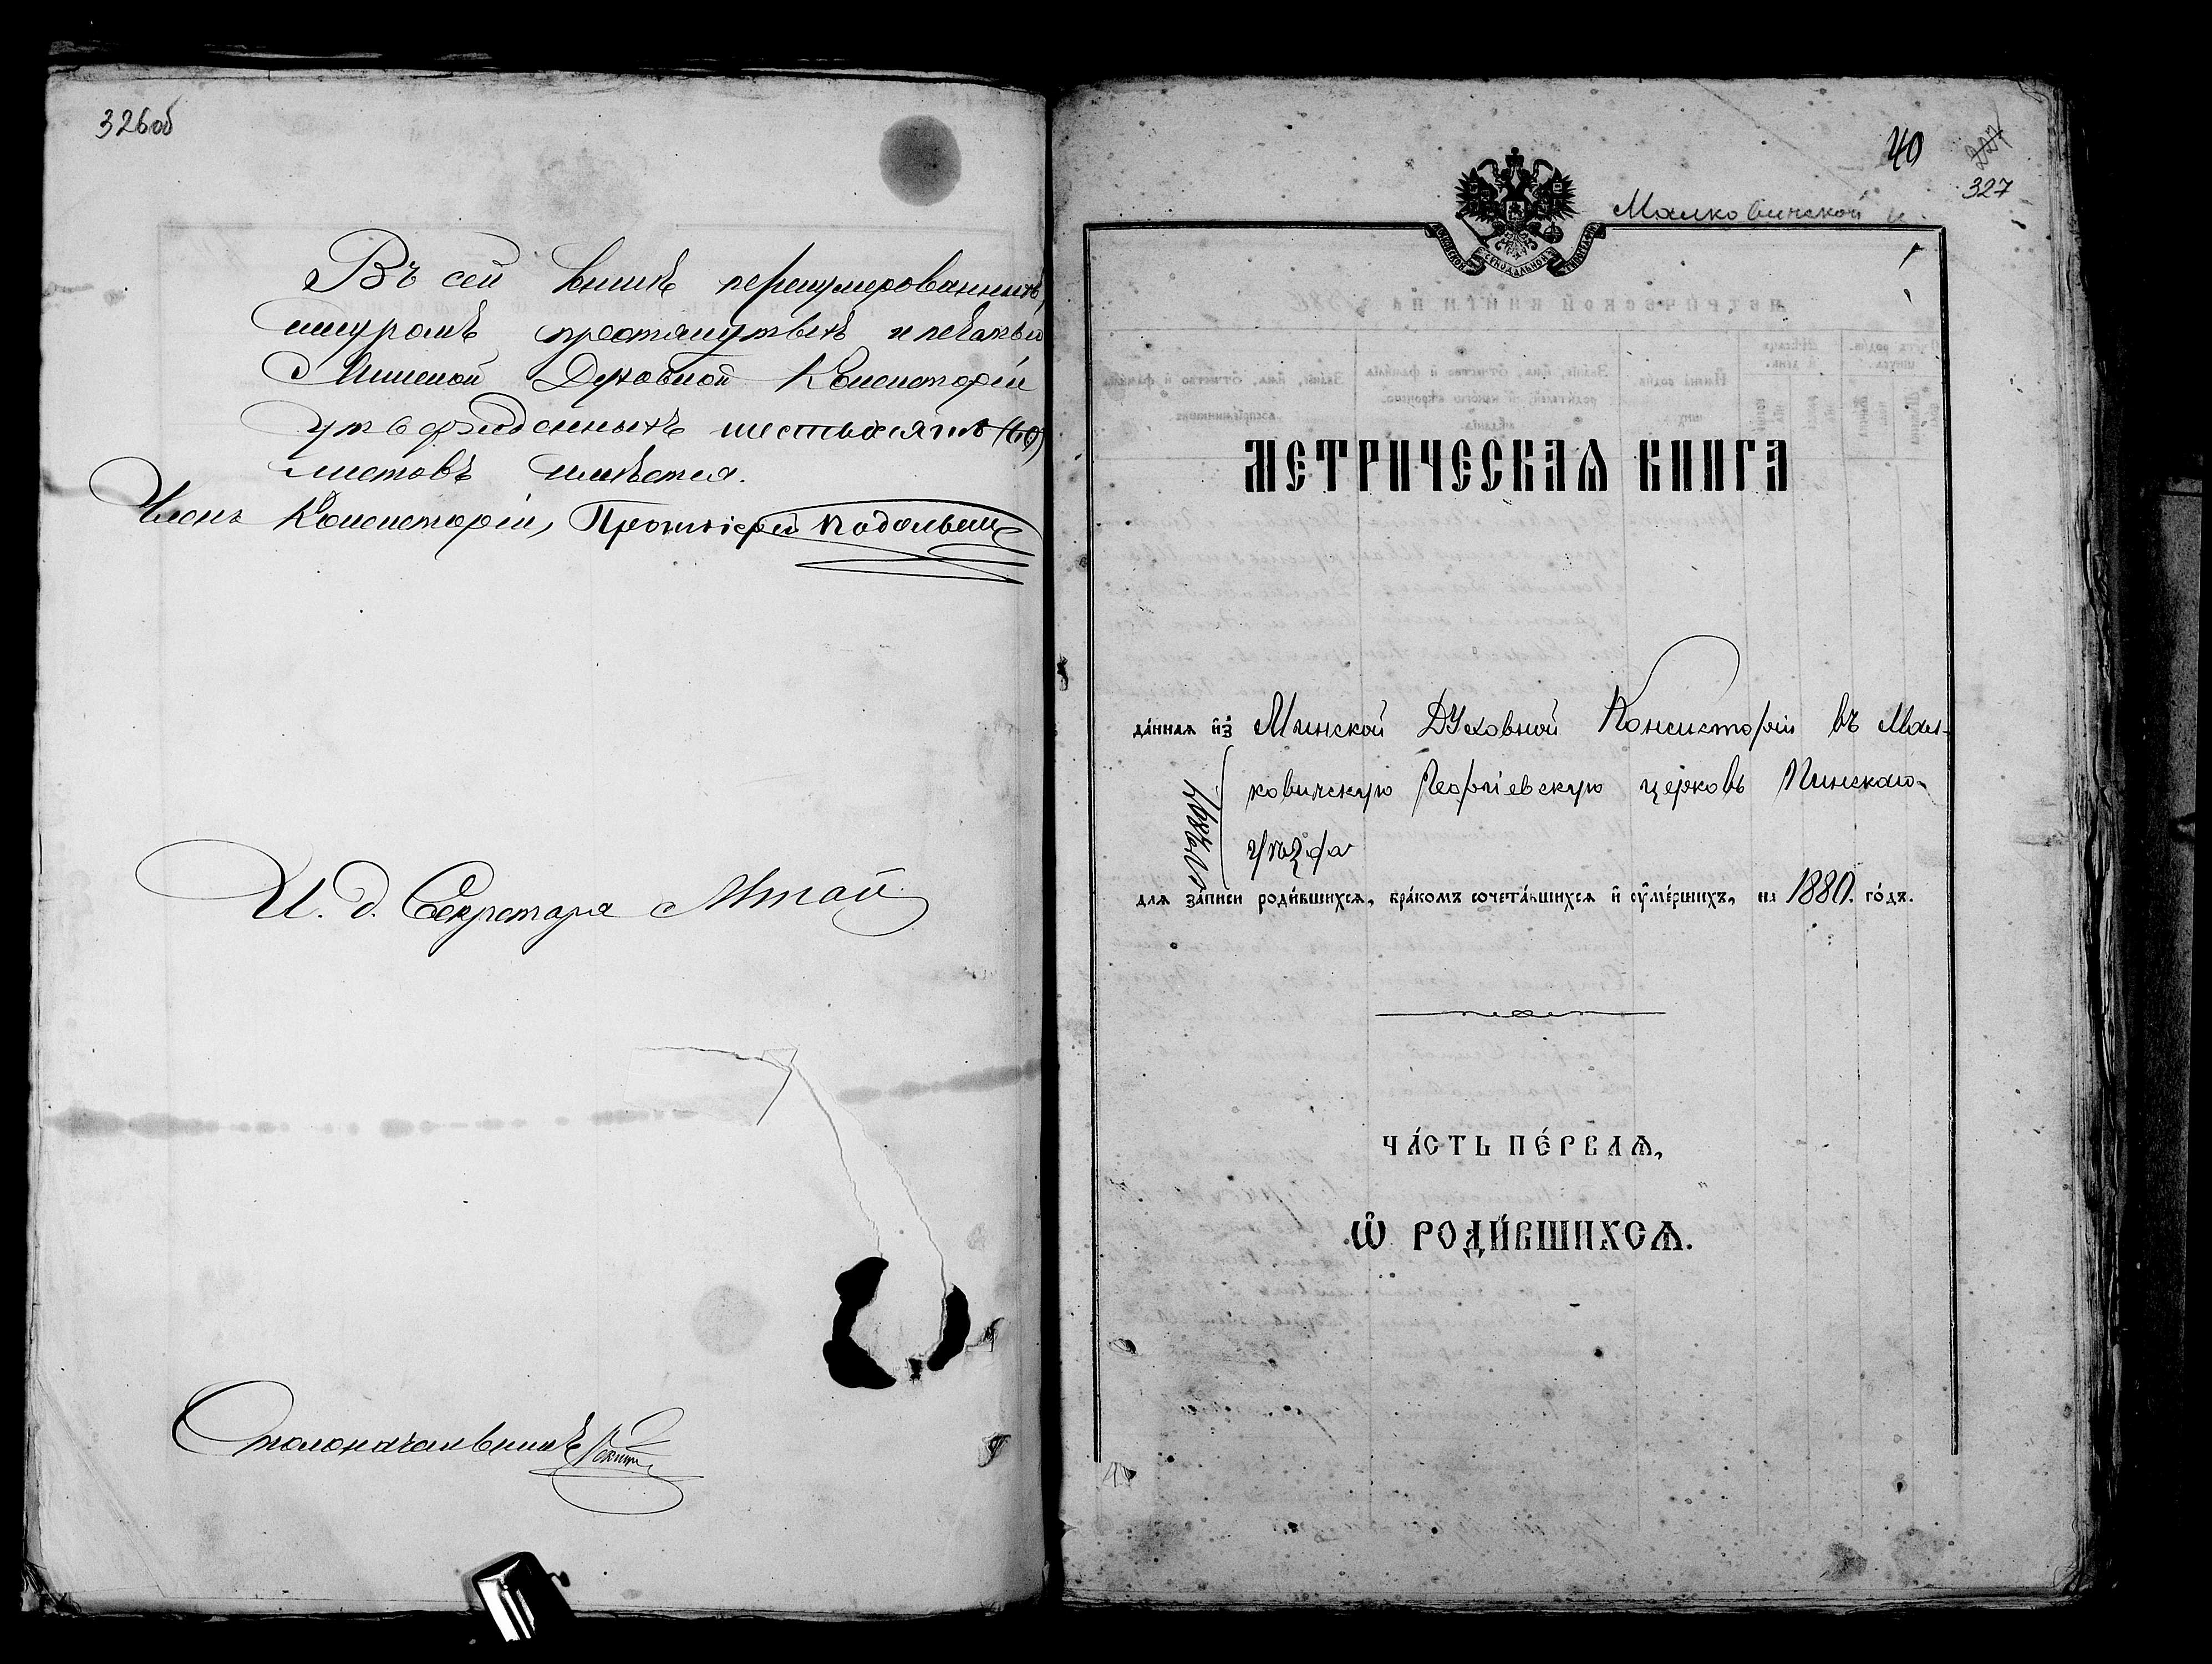 326об
Въ сей книгѣ перенумерованныхъ,
шнуромъ простянутыхъ и печатью
Минской Духовной Консисторіи
утвержденныхъ шестьдесятъ (60)
листовъ имѣется.
Членъ Консисторіи, Протоіерей
И. д. Секретаря
Столоначальникъ
40
327
Малковичской ц.
МОСКОВСКОЙ СѴНОДАЛЬНОЙ ТИПОГРАФІИ
МЕТРИЧЕСКАѦ КНИГА
да́ннаѧ и҆з̾ Минской Духовной Консисторіи въ Мал-
ковичскую Георгіевскую церковь Пинскаго
уѣзда
длѧ за́писи роди́вшихсѧ, бра́комъ сочета́вшихсѧ и҆ ᲂу҆ме́ршихъ, на 1880. го́дъ.
ЧА́СТЬ ПЕ́РВАѦ,
Ѡ҆ РОДИ́ВШИХСѦ.